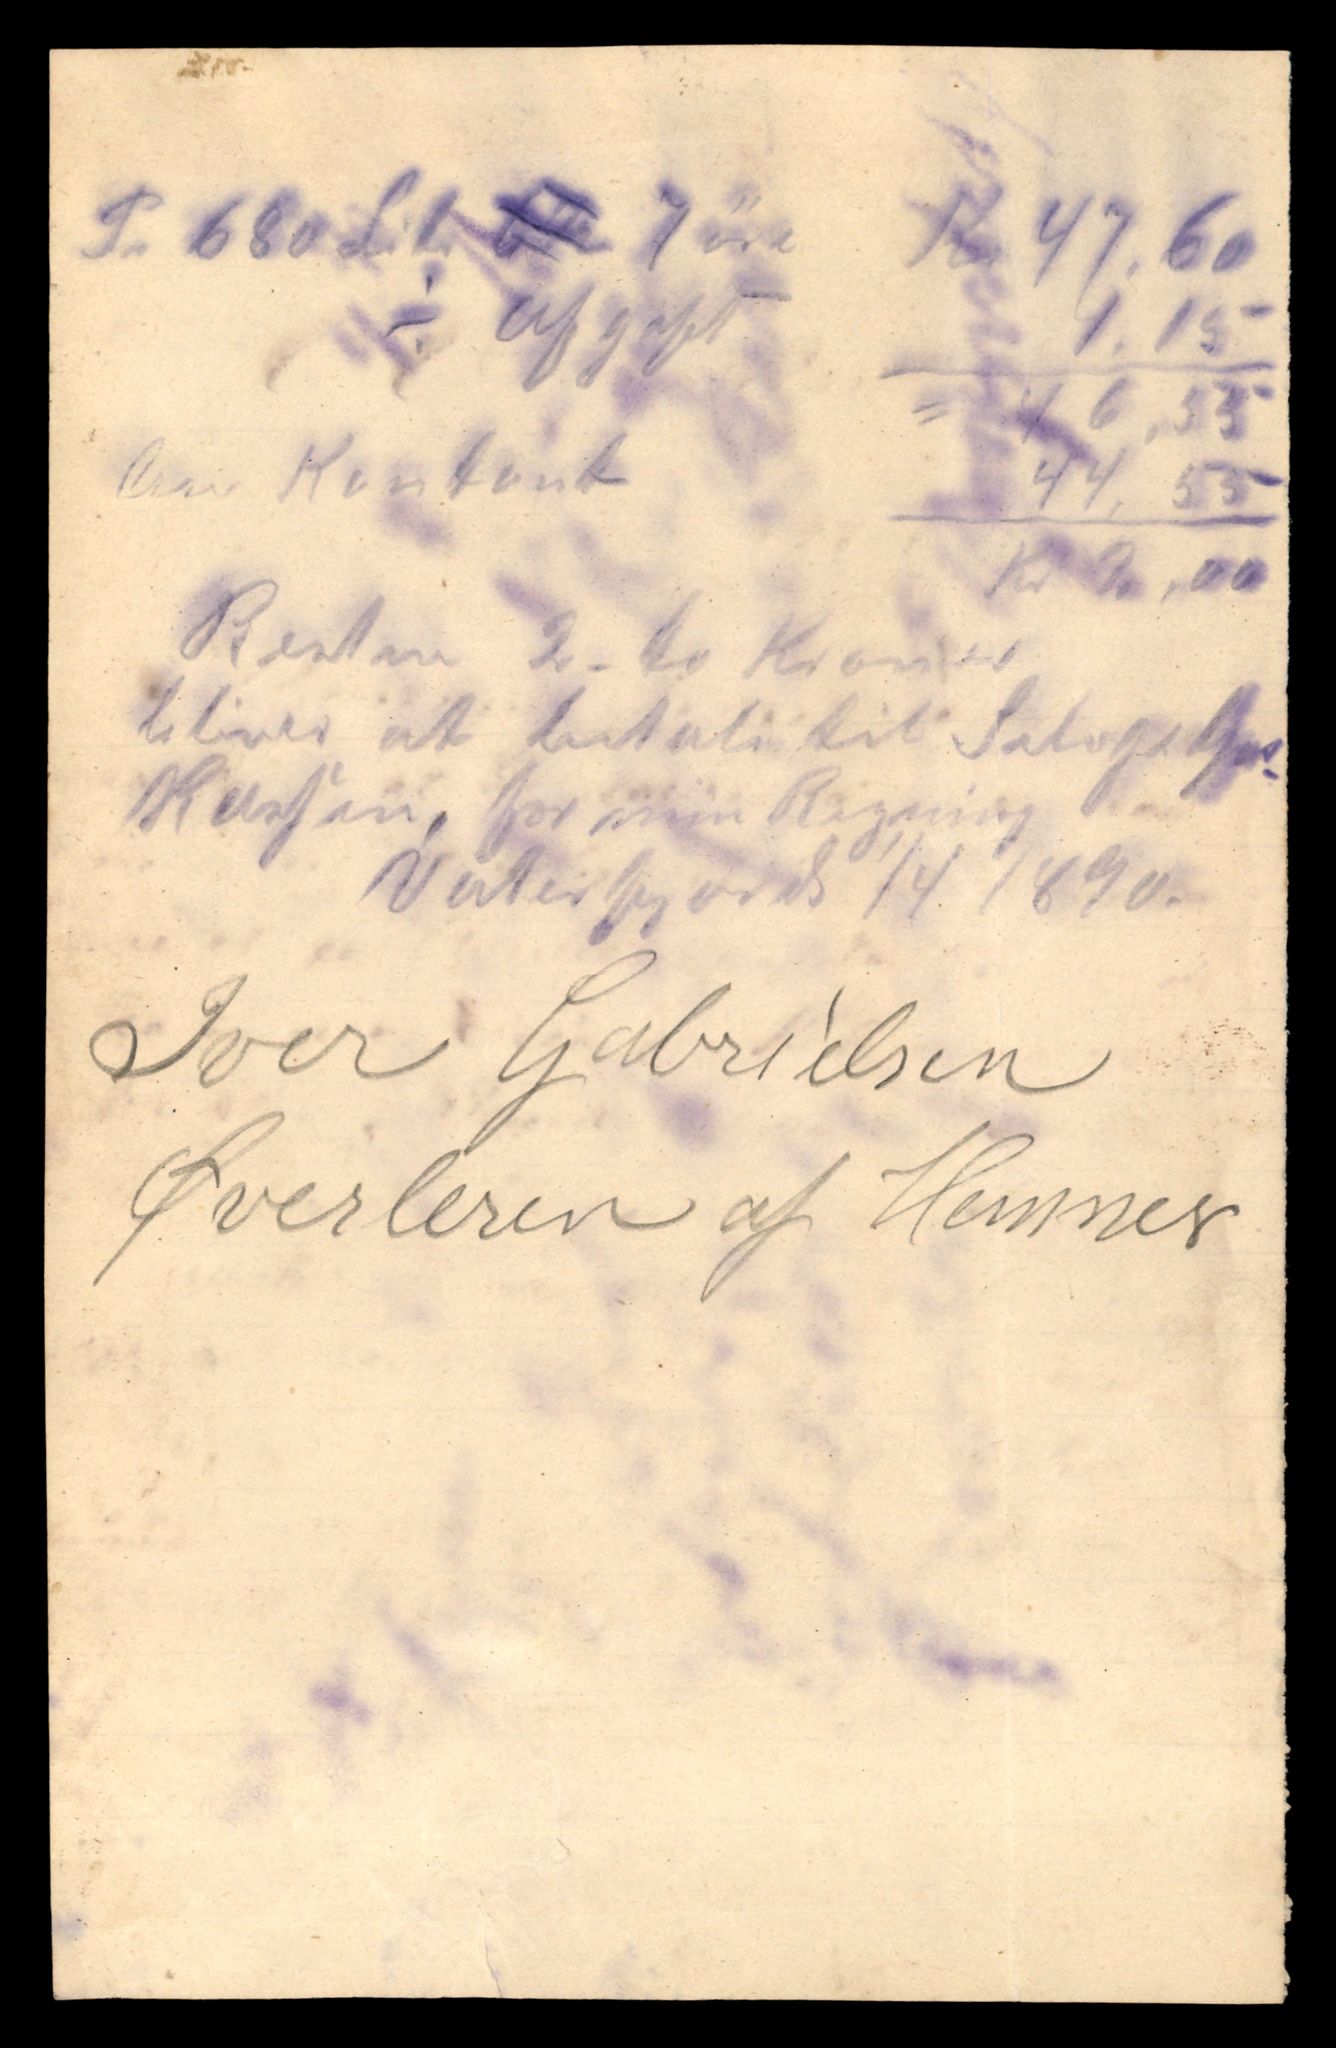 P. 680 Lit. 7 öre Kr 47,60
÷ Afgift 1,15
= 46,55
Kontant 44,55
Kr 2,00
Resten 2 - to Kroner
bliver at betale til
Kassen, for min Regning
Vaterfjord 14 1890.
Iver Gabrielsen
Øverleren af Hemnes